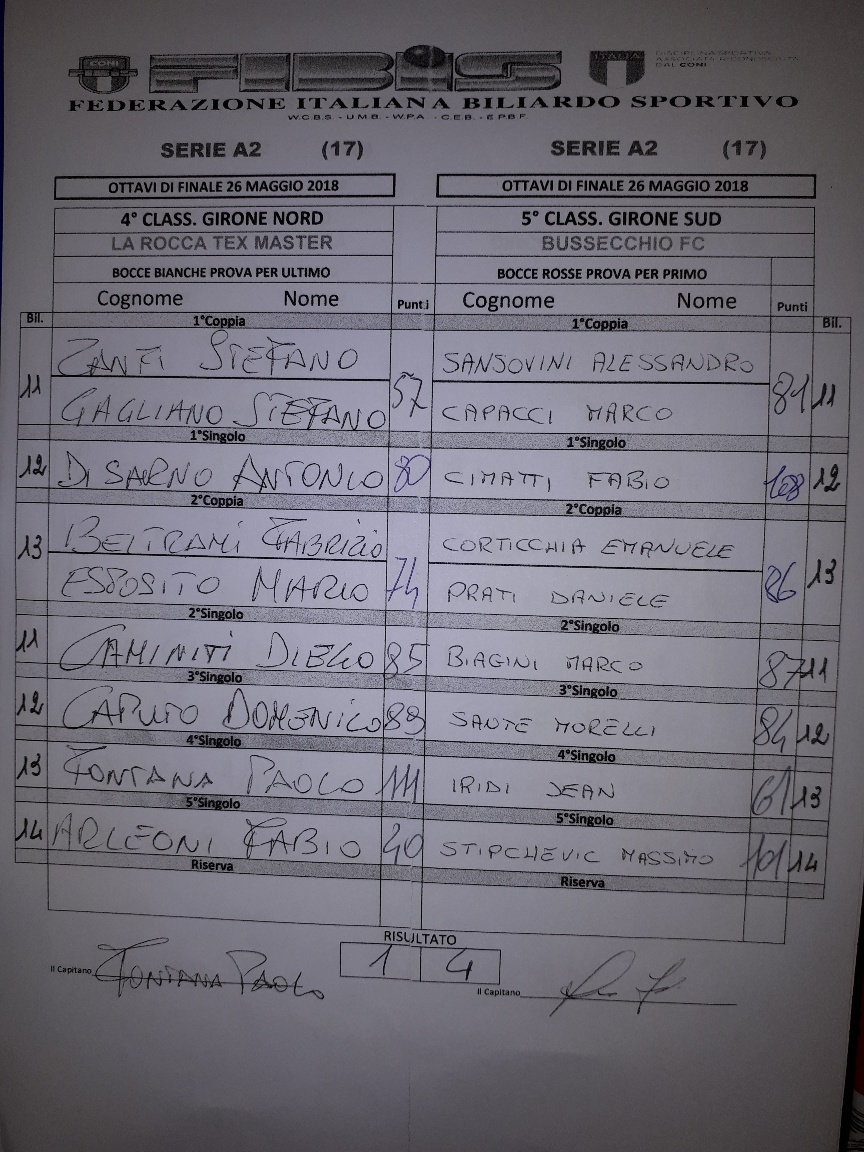 CONI FIBIS ITALIA DISCIPLINA SPORTIVA
ASSOCIATA RICONOSCIUTA
DAL CONI
FEDERAZIONE ITALIANA BILIARDO SPORTIVO
W.C.B.S. - U.M.B. - W.P.A. - C.E.B. - E.P.B.F.
SERIE A2 (17) SERIE A2 (17)
OTTAVI DI FINALE 26 MAGGIO 2018 OTTAVI DI FINALE 26 MAGGIO 2018
4° CLASS. GIRONE NORD 5° CLASS. GIRONE SUD
LA ROCCA TEX MASTER BUSSECCHIO FC
BOCCE BIANCHE PROVA PER ULTIMO BOCCE ROSSE PROVA PER PRIMO
Cognome Nome Punti Cognome Nome Punti
Bil. 1°Coppia 1°Coppia Bil.
ZANFI STEFANO SANSOVINI ALESSANDRO
11 57 81 11
GAGLIANO STEFANO CAPACCI MARCO
1°Singolo 1°Singolo
12 DI SARNO ANTONIO 80 CIMATTI FABIO 108 12
2°Coppia 2°Coppia
BELTRAMI FABRIZIO CORTICCHIA EMANUELE
13 74 86 13
ESPOSITO MARIO PRATI DANIELE
2°Singolo 2°Singolo
11 CAMINITI DIEGO 85 BIAGINI MARCO 87 11
3°Singolo 3°Singolo
12 CAPUTO DOMENICO 89 SANTE MORELLI 84 12
4°Singolo 4°Singolo
13 FONTANA PAOLO 111 IRIDI JEAN 61 13
5°Singolo 5°Singolo
14 ARLEONI FABIO 40 STIPCHEVIC MASSIMO 101 14
Riserva Riserva
RISULTATO
1 4
Il Capitano FONTANA PAOLO Il Capitano